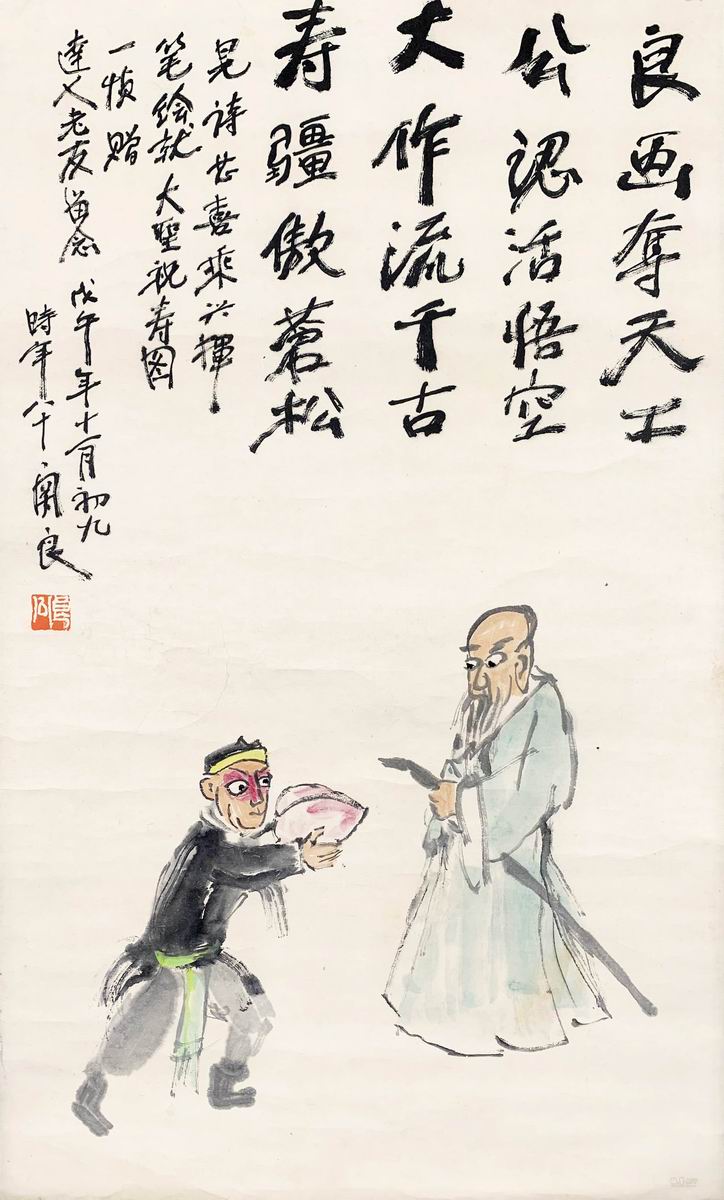 良画奪天工
公認活悟空
大作流千古
寿疆傲蒼松
見诗甚喜乘兴揮
笔绘就大聖祝寿图
一幀 贈
達人老友留念
戊午年十一月初九
時年八十 関良